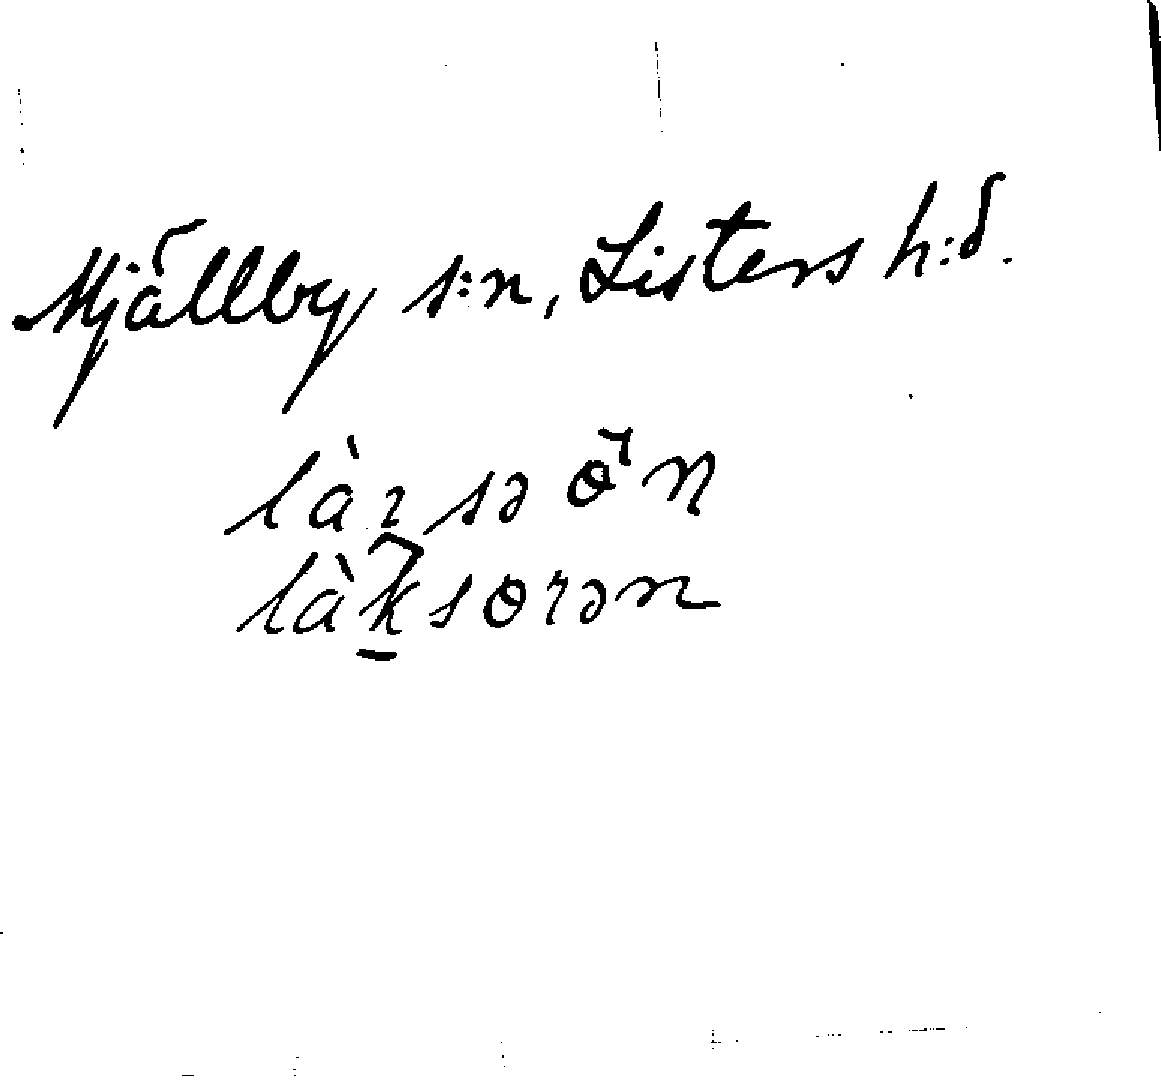 Mjällby s:n, Listers h:d.
làrsə ɵ̄n
làksɵrən